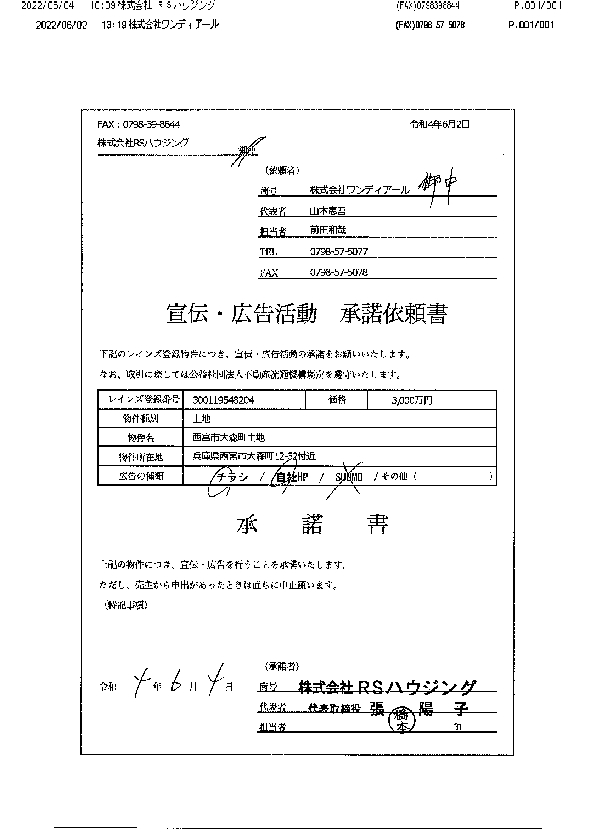 2022/06/04 10:09 株式会社 RSハウジング (FAX)0798398844 P.001/001
2022/06/02 13:19 株式会社ワンディアール (FAX)0798-57-5078 P.001/001
FAX:0798-39-8844 令和4年6月2日
株式会社RSハウジング 御中
(依頼者)
商号 株式会社ワンディアール 御中
代表者 山本憲吾
担当者 前田和哉
TEL 0798-57-5077
FAX 0798-57-5078
宣伝・広告活動 承諾依頼書
下記のレインズ登録物件につき、宣伝・広告活動の承諾をお願いいたします。
なお、取引に際しては公益社団法人不動産流通機構規定を遵守いたします。
レインズ登録番号 300119548204 価格 3,000万円
物件種別 土地
物件名 西宮市大森町土地
物件所在地 兵庫県西宮市大森町12-52付近
広告の種類 チラシ / 自社HP / SUUMO / その他( )
承 諾 書
上記の物件につき、宣伝・広告を行うことを承諾いたします。
ただし、売主から申出があったときは直ちに中止願います。
(特記事項)
(承諾者)
令和 4 年 6 月 4 日
商号 株式会社RSハウジング
代表者 代表取締役 張 陽 子
担当者 橋本 印